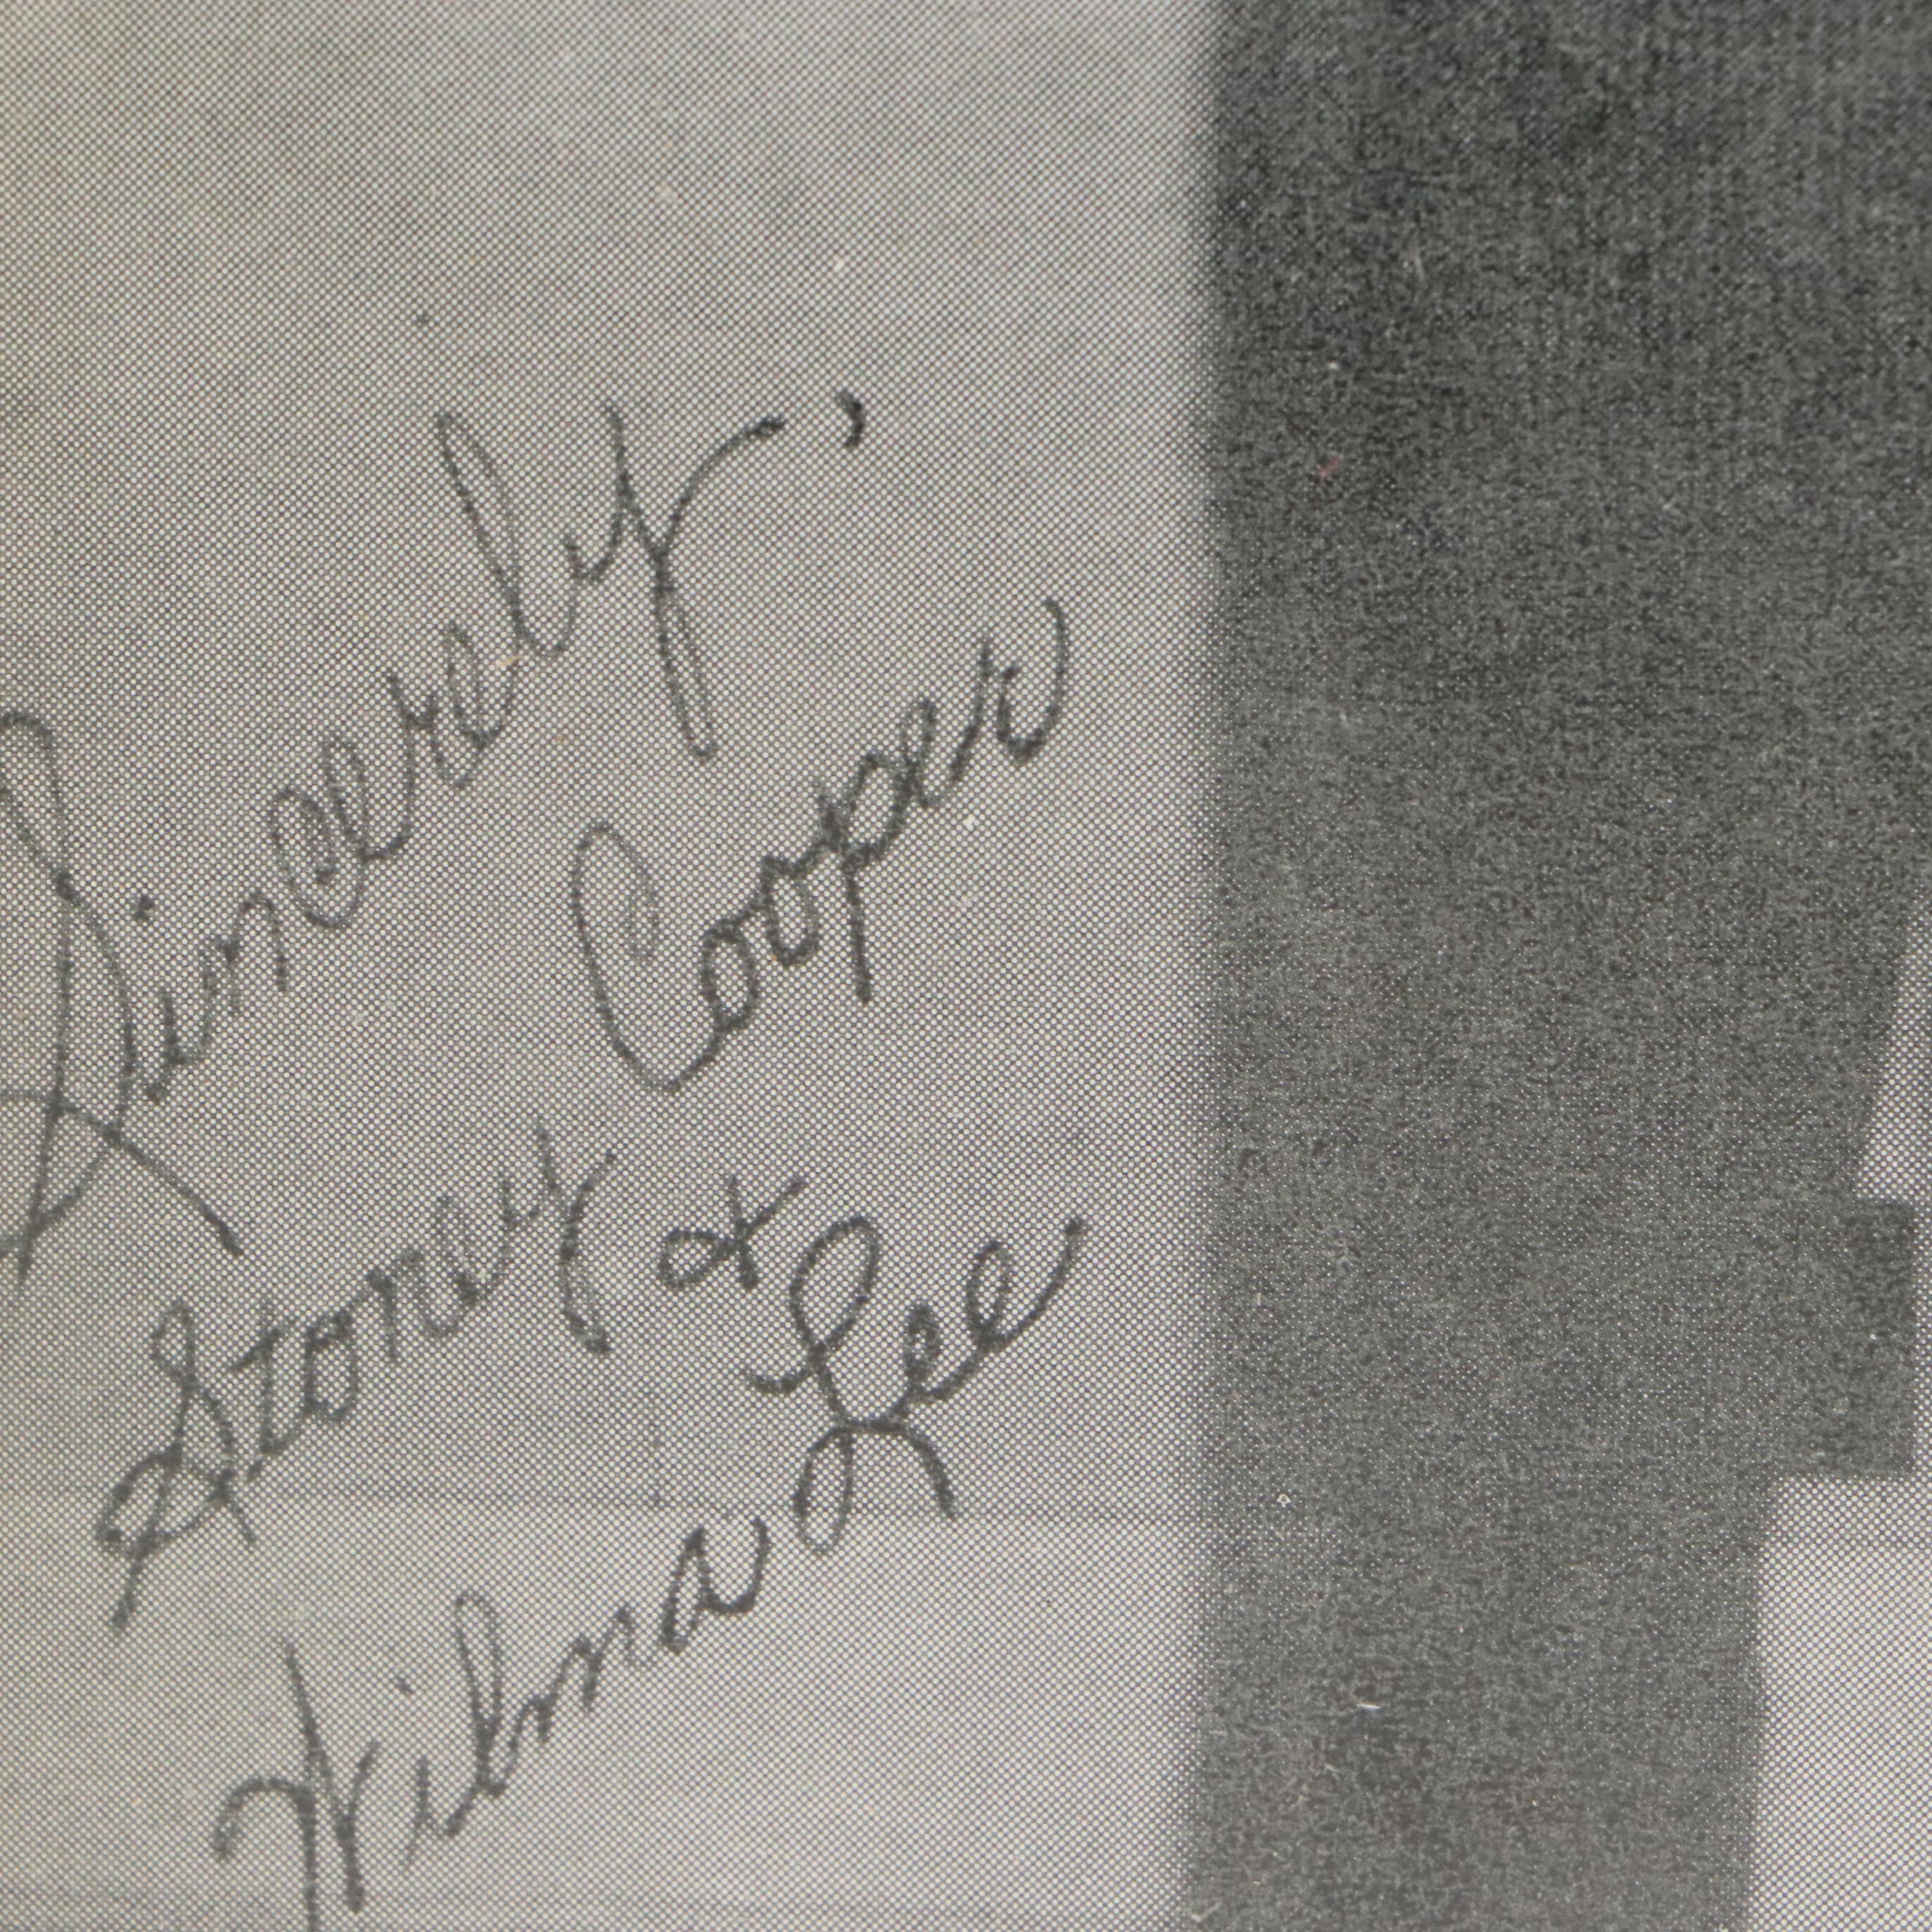 Sincerely,
Stoney Cooper
&
Wilma Lee